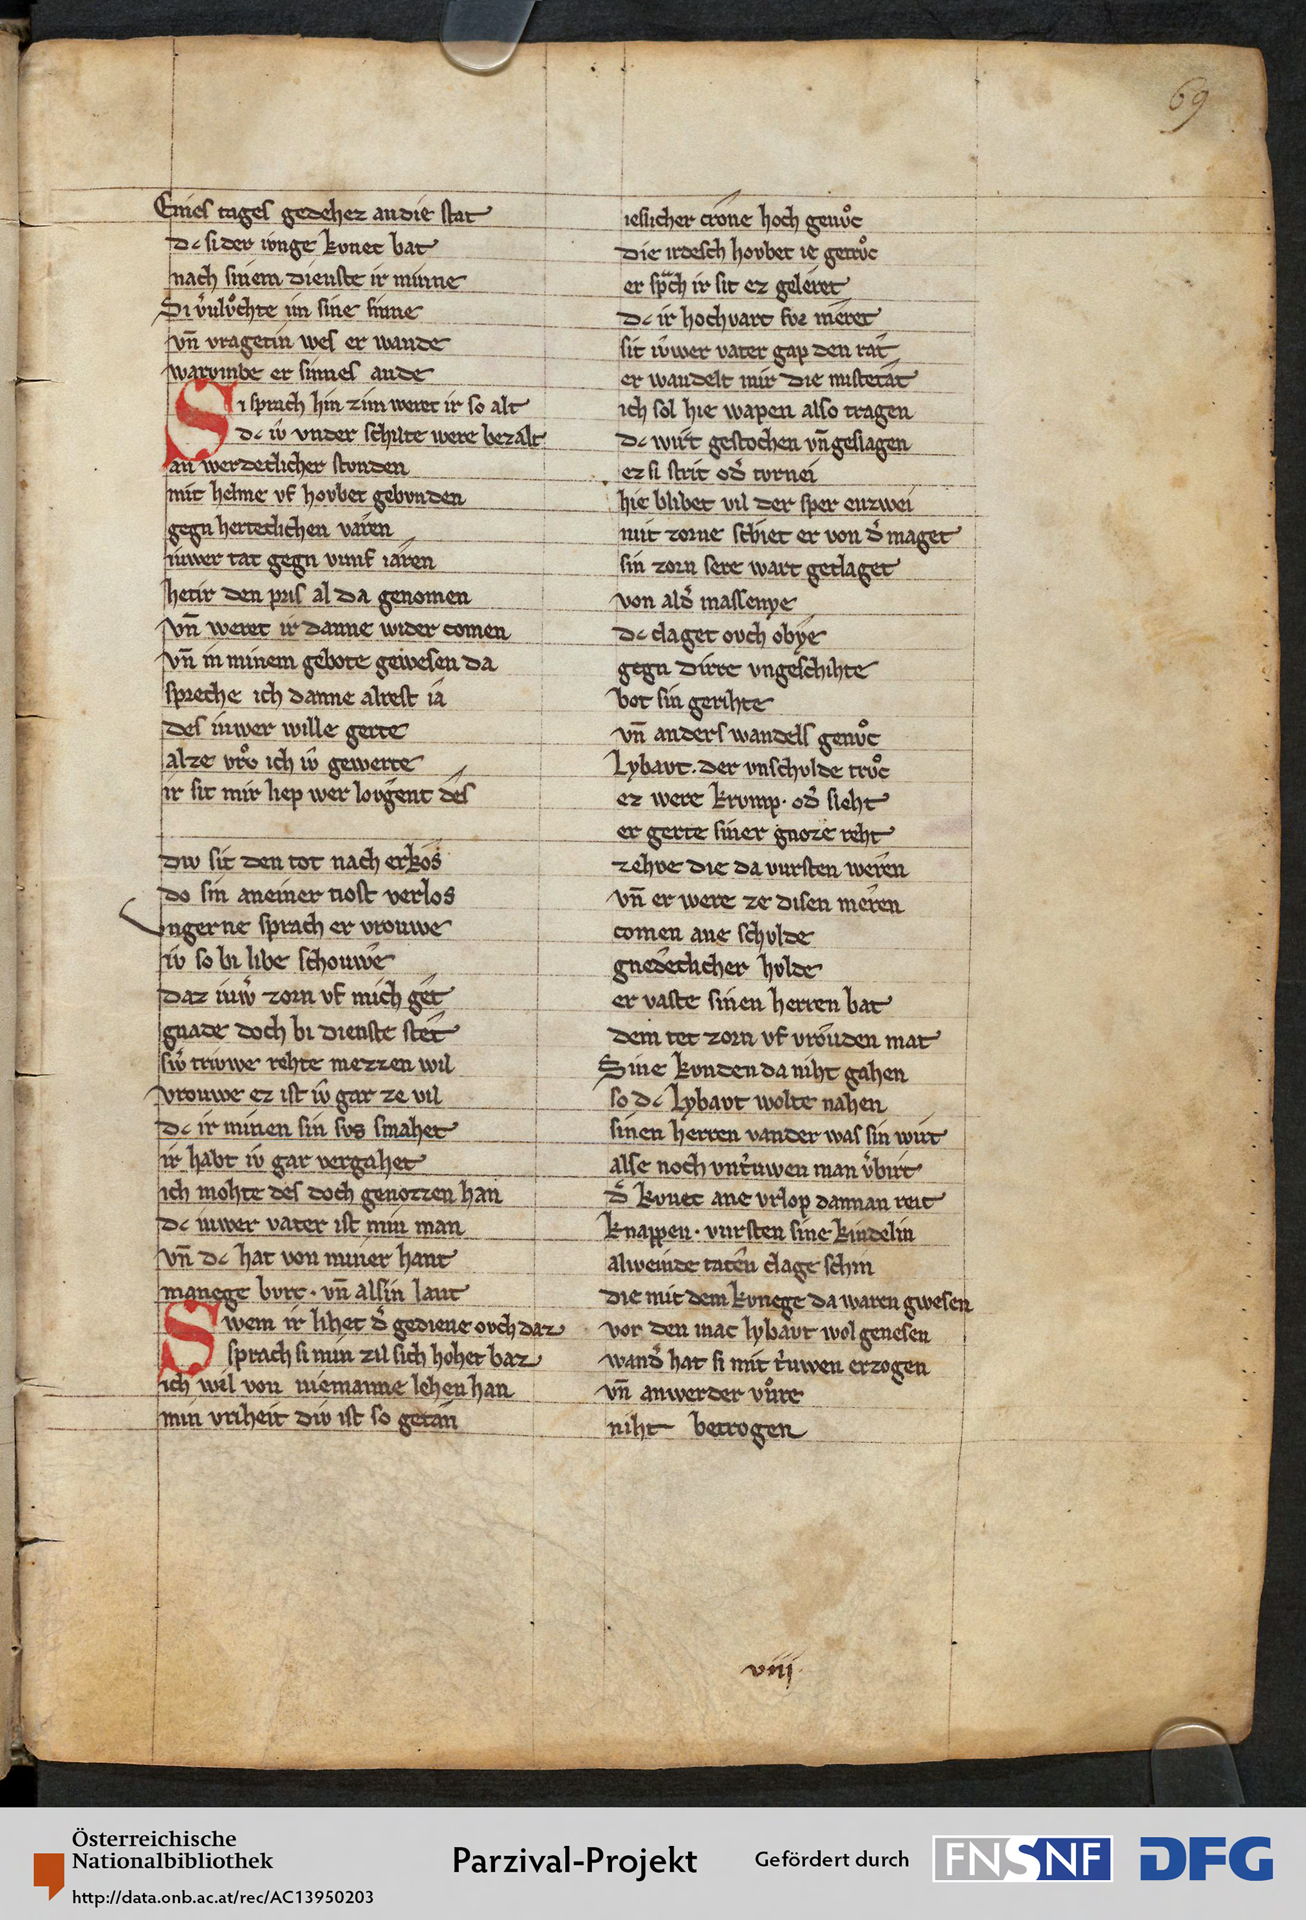 69
Eines tages gedehez an die stat
dc si der ivnge kvnec bat
nach sinem dienste ir minne
Si v̓vlv̊chte im sine sinne
vn̄ vragetin wes er wande
warvmbe er sinnes ande
Si sprach hin zim weret ir so alt
dc iv̂ vnder schilte were bezalt
an werdeclicher stvnden
mit helme vf hovbet gebvnden
gegn herteclichen varen
iuwer tat gegn vunf iaren
hetir den pris al da genomen
vn̄ weret ir danne wider comen
vn̄ in minem gebote gewesen da
spreche ich danne alrest ia
des iuwer wille gerte
alze vrv̊ ich iv̂ gewerte
ir sit mir liep wer lovgent des
diw sit den tot nach erkos
do sin an einer tiost verlos
vngerne sprach er vrouwe
iv̂ so bi libe schouwe
daz iuw̓ zorn vf mich get
gnade doch bi dienste stet
sw̓ triwe rehte mezzen wil
vrouwe ez ist iv̂ gar ze vil
dc ir minen sin svs smahet
ir habt iv̂ gar vergahet
ich mohte des doch genozzen han
dc iuwer vater ist min man
vn̄ dc hat von miner hant
manege bvrc · vn̄ alsin lant
Swem ir lihet d̓ gediene ovch daz
sprach si min zil sich hohet baz
ich wil von niemanne lehen han
min vriheit div ist so getan
ieslicher crone hoch genv̊c
die irdesch hovbet ie getrv̊c
er sp̾ch ir sit ez geleret
dc ir hochvart svz meret
sit iv̂wer vater gap den rat
er wandelt mir die missetat
ich sol hie wapen also tragen
dc wirt gestochen vn̄ geslagen
ez si strit od̓ tornei
hie blibet vil der sper enzwei
mit zorne schiet er von d̓ maget
sin zorn sere wart geclaget
von ald̓ massenye
dc claget ovch obye
gegn dirre vngeschihte
bot sin gerihte
vn̄ anders wandels genv̊c
Lybavt · der vnschvlde trv̊c
ez were krvmp · od̓ sleht
er gerte siner gnoze reht
zehve die da vursten weren
vn̄ er were ze disen meren
comen ane schvlde
gnedeclicher hvlde
er vaste sinen herren bat
dem tet zorn vf vröuden mat
Sine kvnden da niht gahen
so dc Lybavt wolte nahen
sinen herren vander was sin wirt
alse noch vnt̓uwen man v̓birt
d̓ kvnec ane vrlop dannan reit
knappen · vursten sine kindelin
al weinde taten clage schin
die mit dem kvnege da waren gwesen
vor den mac lybavt wol genesen
wand̓ hat si mit t̓uwen erzogen
vn̄ anwerder vv̊re
niht betrogen
viij
Österreichische
Nationalbibliothek
http://data.onb.ac.at/rec/AC13950203
Parzival-Projekt
Gefördert durch
FNSNF
DFG